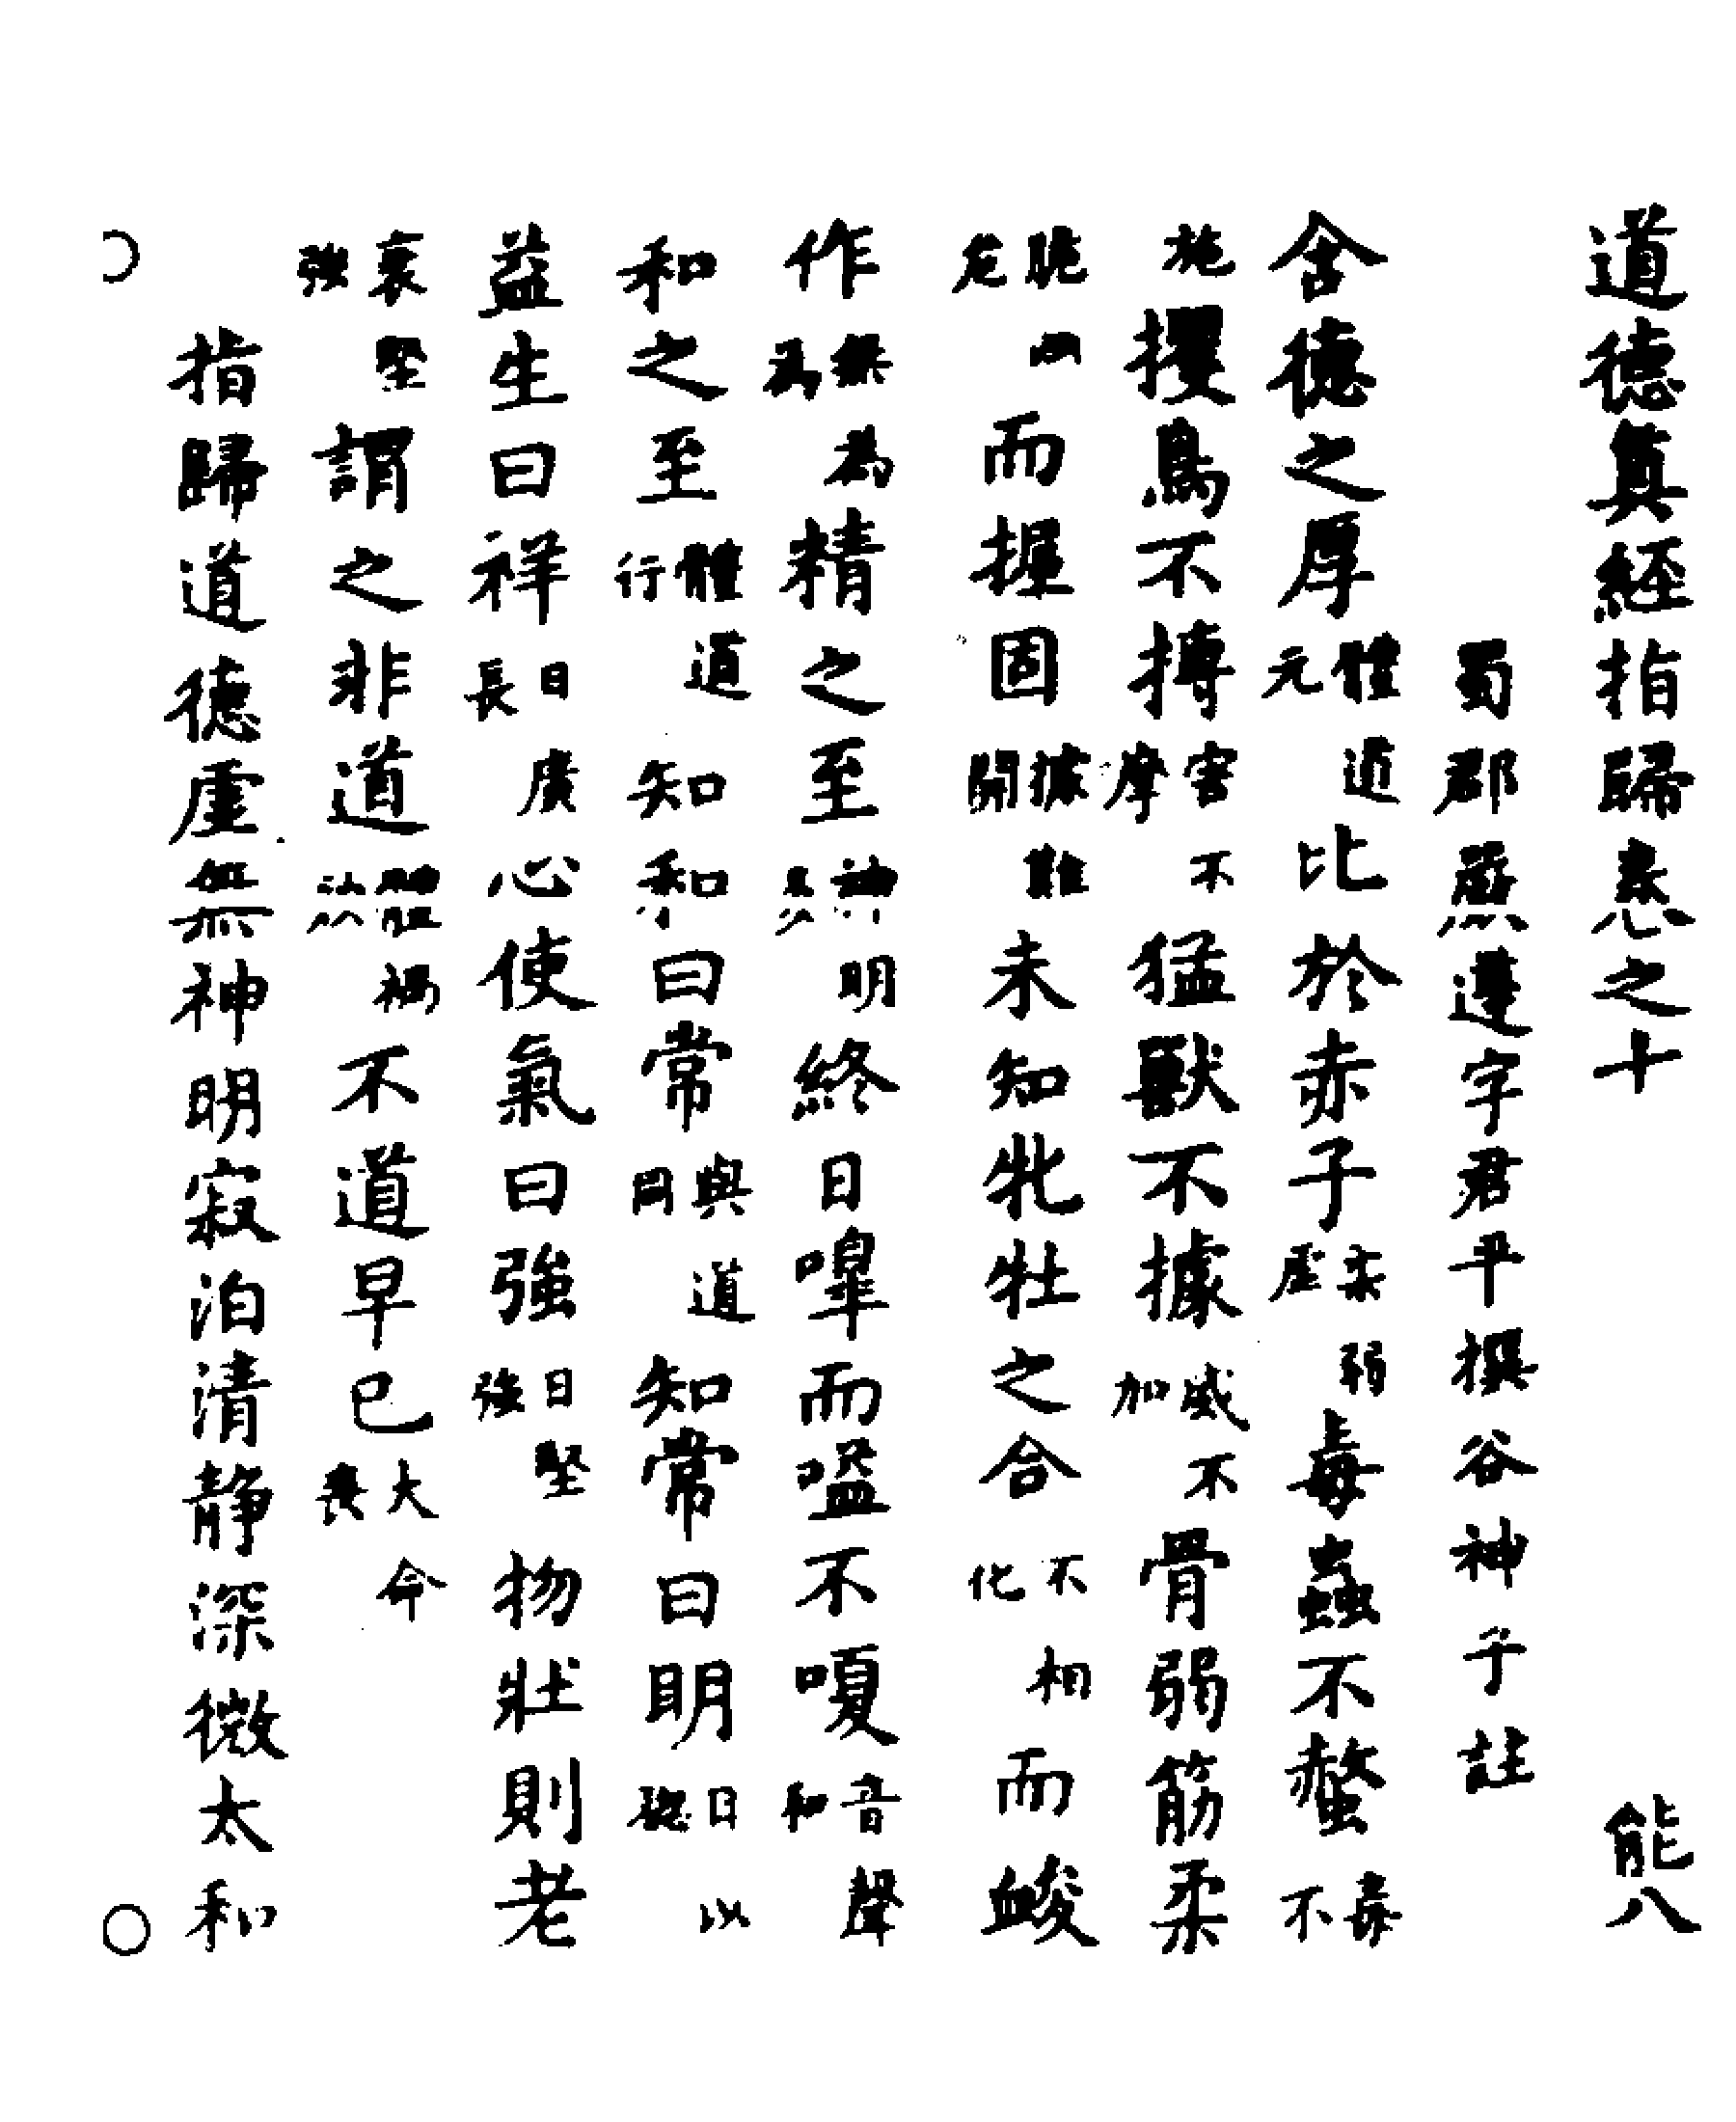 道德真經指歸卷之十 能八
蜀郡嚴遵字君平撰谷神子註
含德之厚體道元比於赤子柔弱虛毒蟲不螫毒不
施攫鳥不搏害不摩猛獸不據威不加骨弱筋柔
脆危而握固據難開未知牝牡之合不相化而䘒
作無為為精之至神明終日嘷而嗌不嗄音聲和
和之至體道行知和曰常與道同知常曰明日以聰
益生曰祥日廣長心使氣曰強日堅強物壯則老
衰堅強謂之非道體禍不道早已大命喪
指歸道德虛無神明寂泊清静深微太和